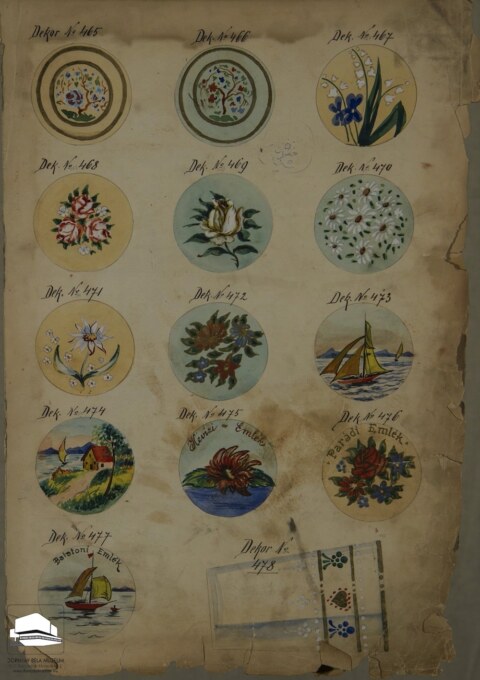 Dekor № 465
Dek. № 466
Dek. № 467
Dek. № 468
Dek. № 469
Dek. № 470
Dek. № 471
Dek. № 472
Dek. № 473
Dek. № 474
Dek. № 475
Dek. № 476
Hévizi Emlék
Parádi Emlék
Dek. № 477
Balatoni Emlék
Dekor №
478